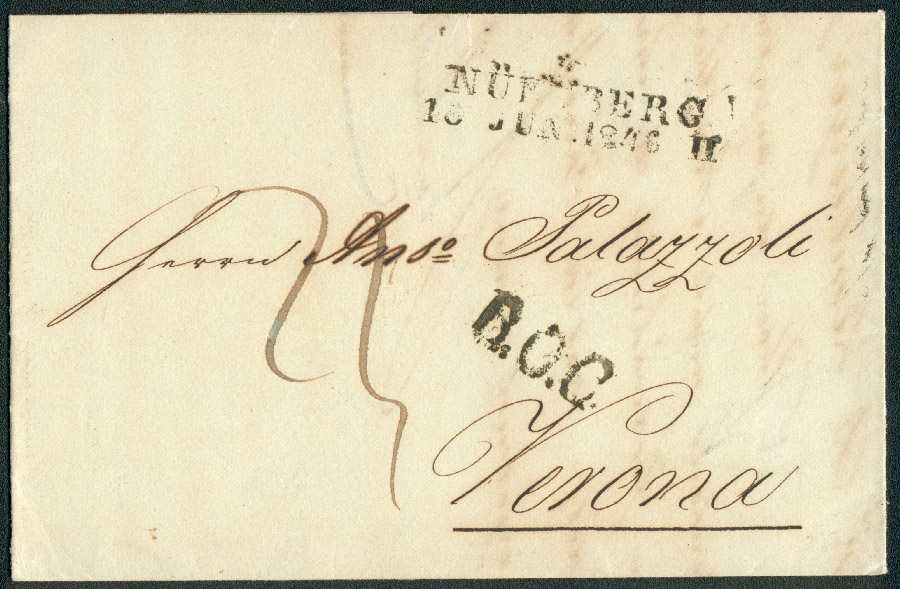 NÜRNBERG
JUN. 1846 II
Herrn Anso Palazzoli
B.O.C.
Verona